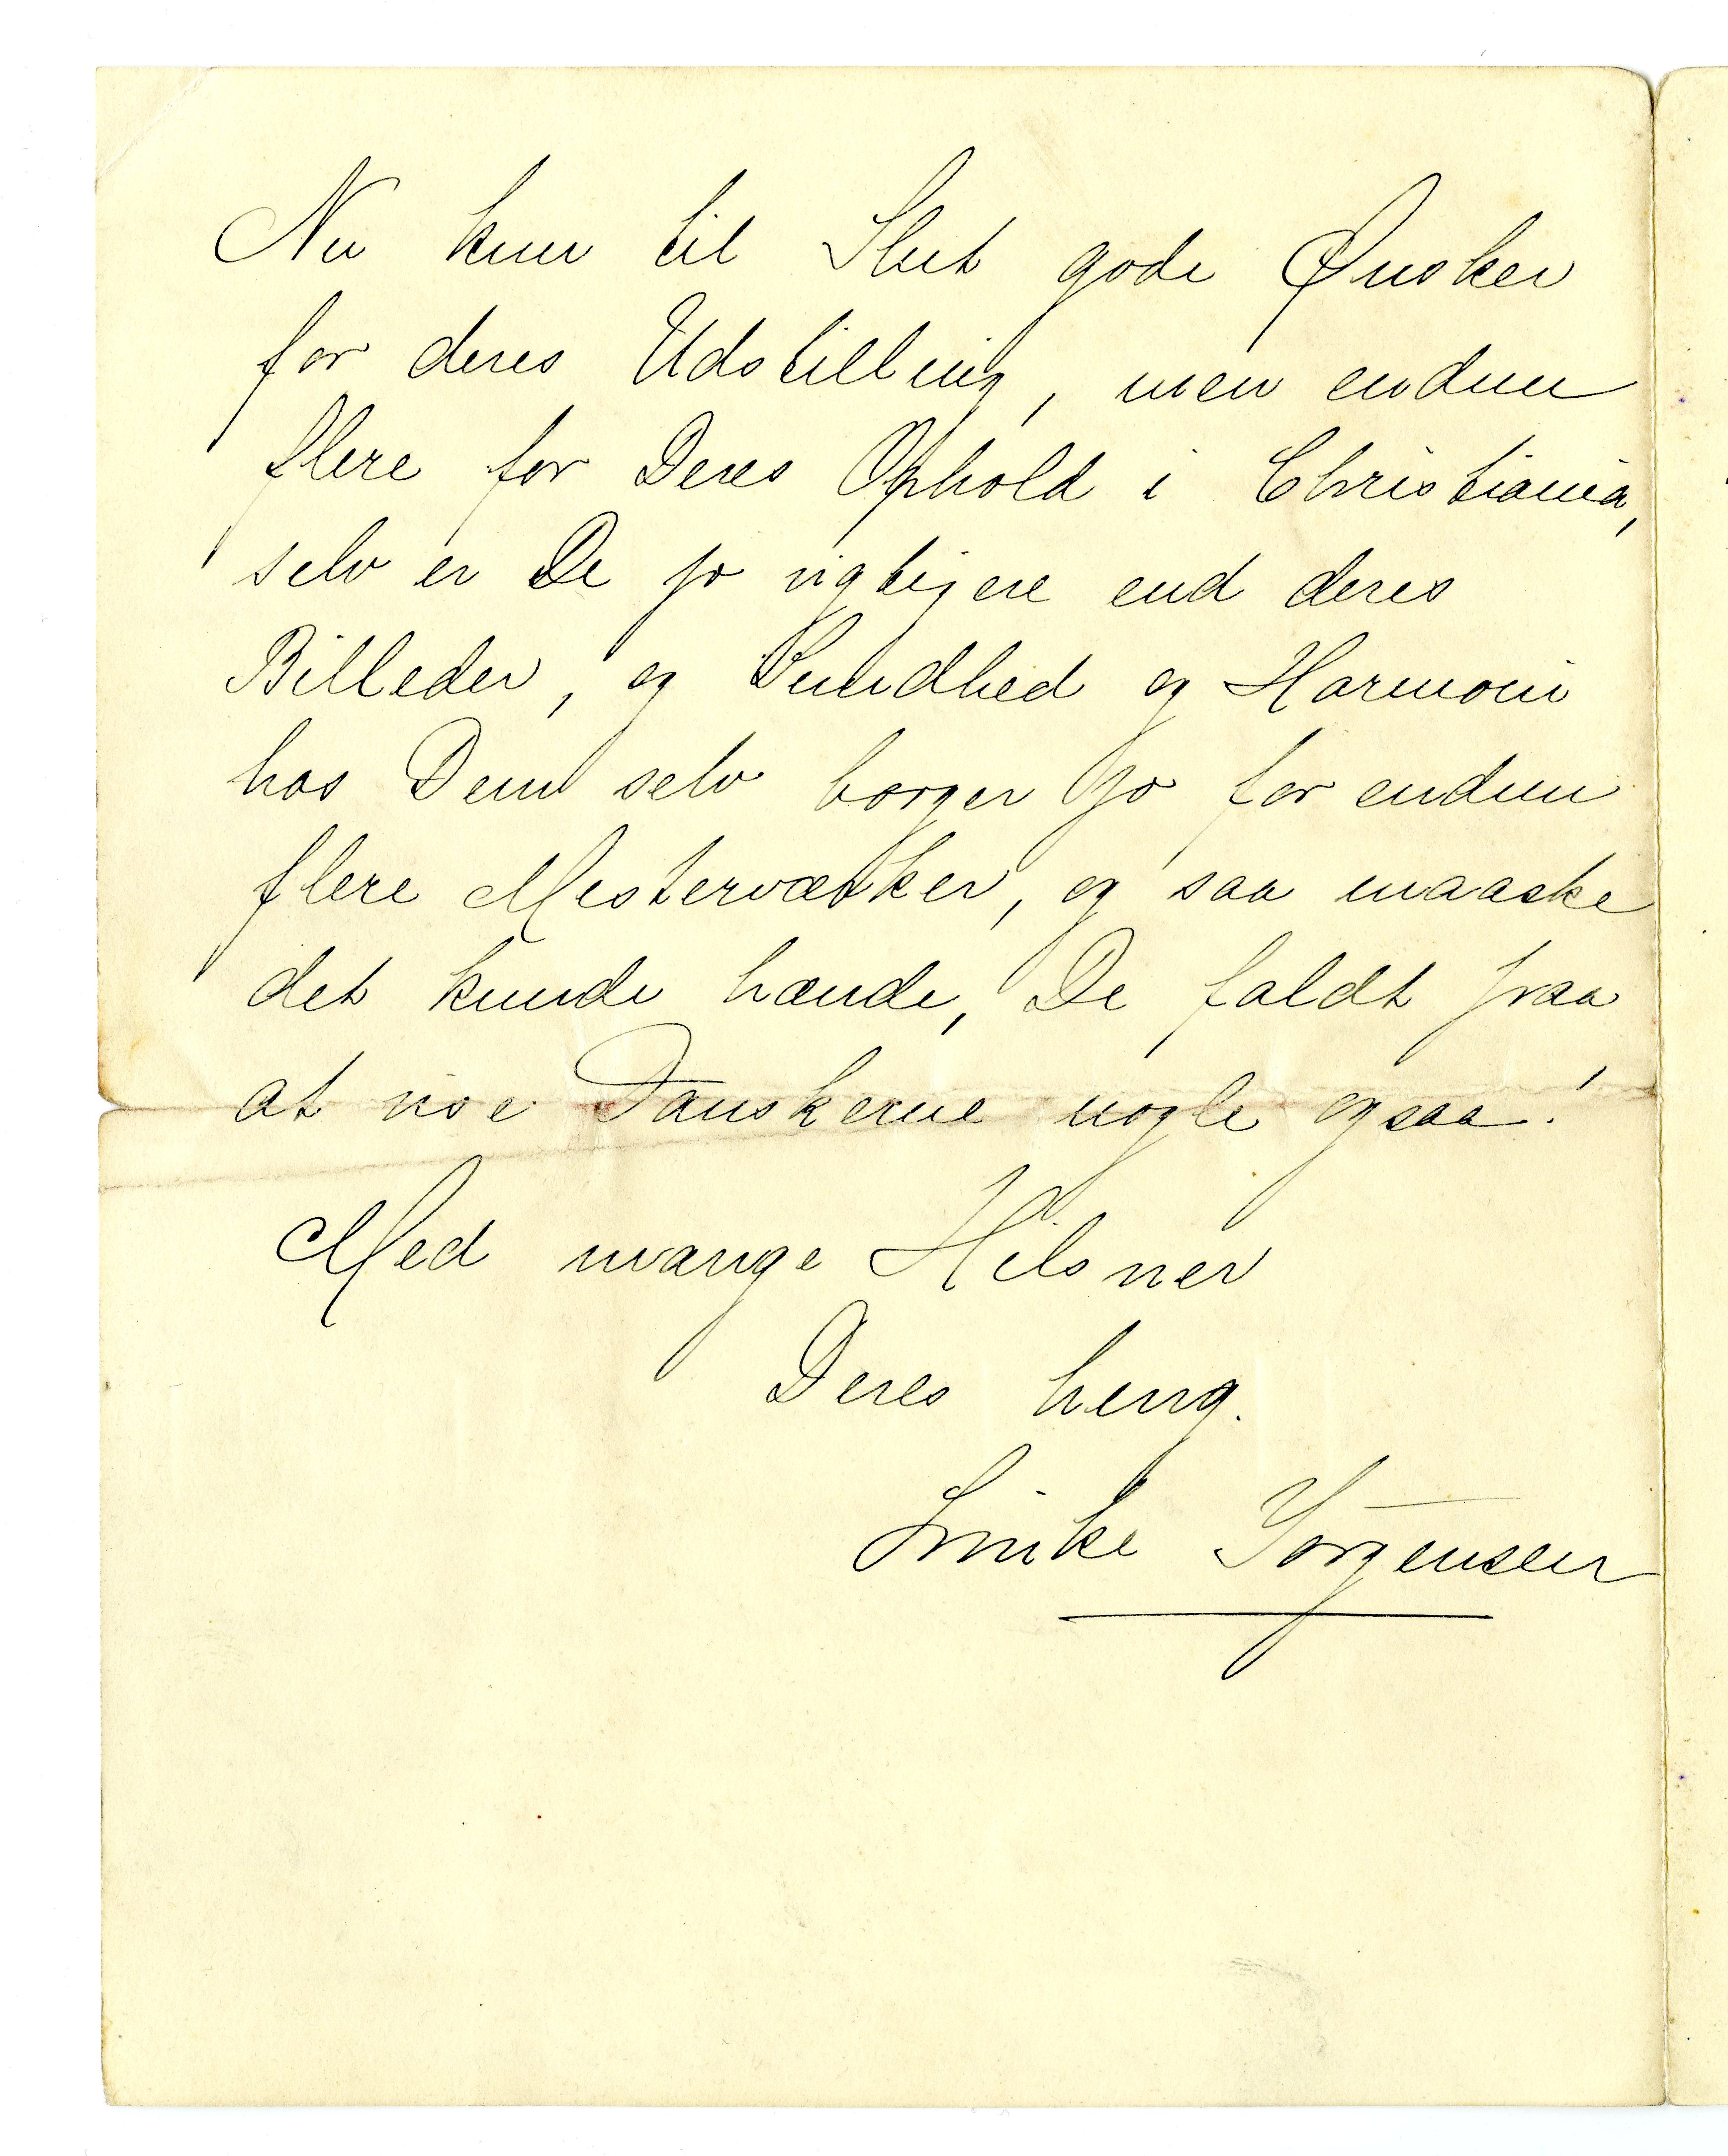 Nu kun til Slut gode Ønsker
for deres Udstilling, men endnu
flere for Deres Ophold i Christiania,
selv er De jo vigtigere end deres
Billeder, og Sundhed og Harmoni
hos Dem selv borger jo for endnu
flere Mesterværker, og saa maaske
det kunde hænde, De faldt fraa
at vise Danskerne nogle ogsaa!
Med mange Hilsner
Deres heng.
Jørgensen